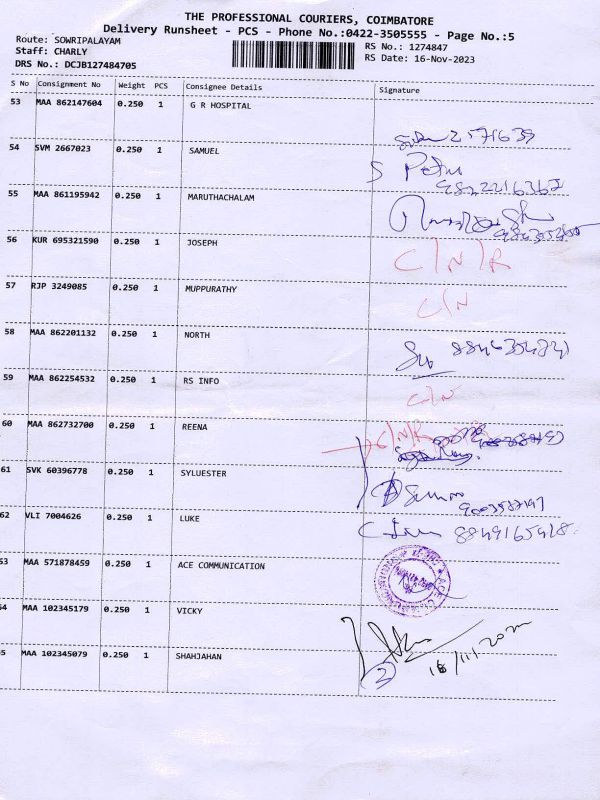 THE PROFESSIONAL COURIERS, COIMBATORE
Delivery Runsheet - PCS - Phone No.:0422-3505555 - Page No.:5
Route: SOWRIPALAYAM
Staff: CHARLY
DRS No.: DCJB127484705
RS No.: 1274847
RS Date: 16-Nov-2023
S No Consignment No Weight PCS Consignee Details Signature
53 MAA 862147604 0.250 1 G R HOSPITAL
54 SVM 2667023 0.250 1 SAMUEL
55 MAA 861195942 0.250 1 MARUTHACHALAM
56 KUR 695321590 0.250 1 JOSEPH C/N/R
57 RJP 3249085 0.250 1 MUPPURATHY C/N
58 MAA 862201132 0.250 1 NORTH
59 MAA 862254532 0.250 1 RS INFO C/N
60 MAA 862732700 0.250 1 REENA C/N/R
61 SVK 60396778 0.250 1 SYLUESTER
62 VLI 7004626 0.250 1 LUKE
53 MAA 571878459 0.250 1 ACE COMMUNICATION
54 MAA 102345179 0.250 1 VICKY
5 MAA 102345079 0.250 1 SHAHJAHAN 2